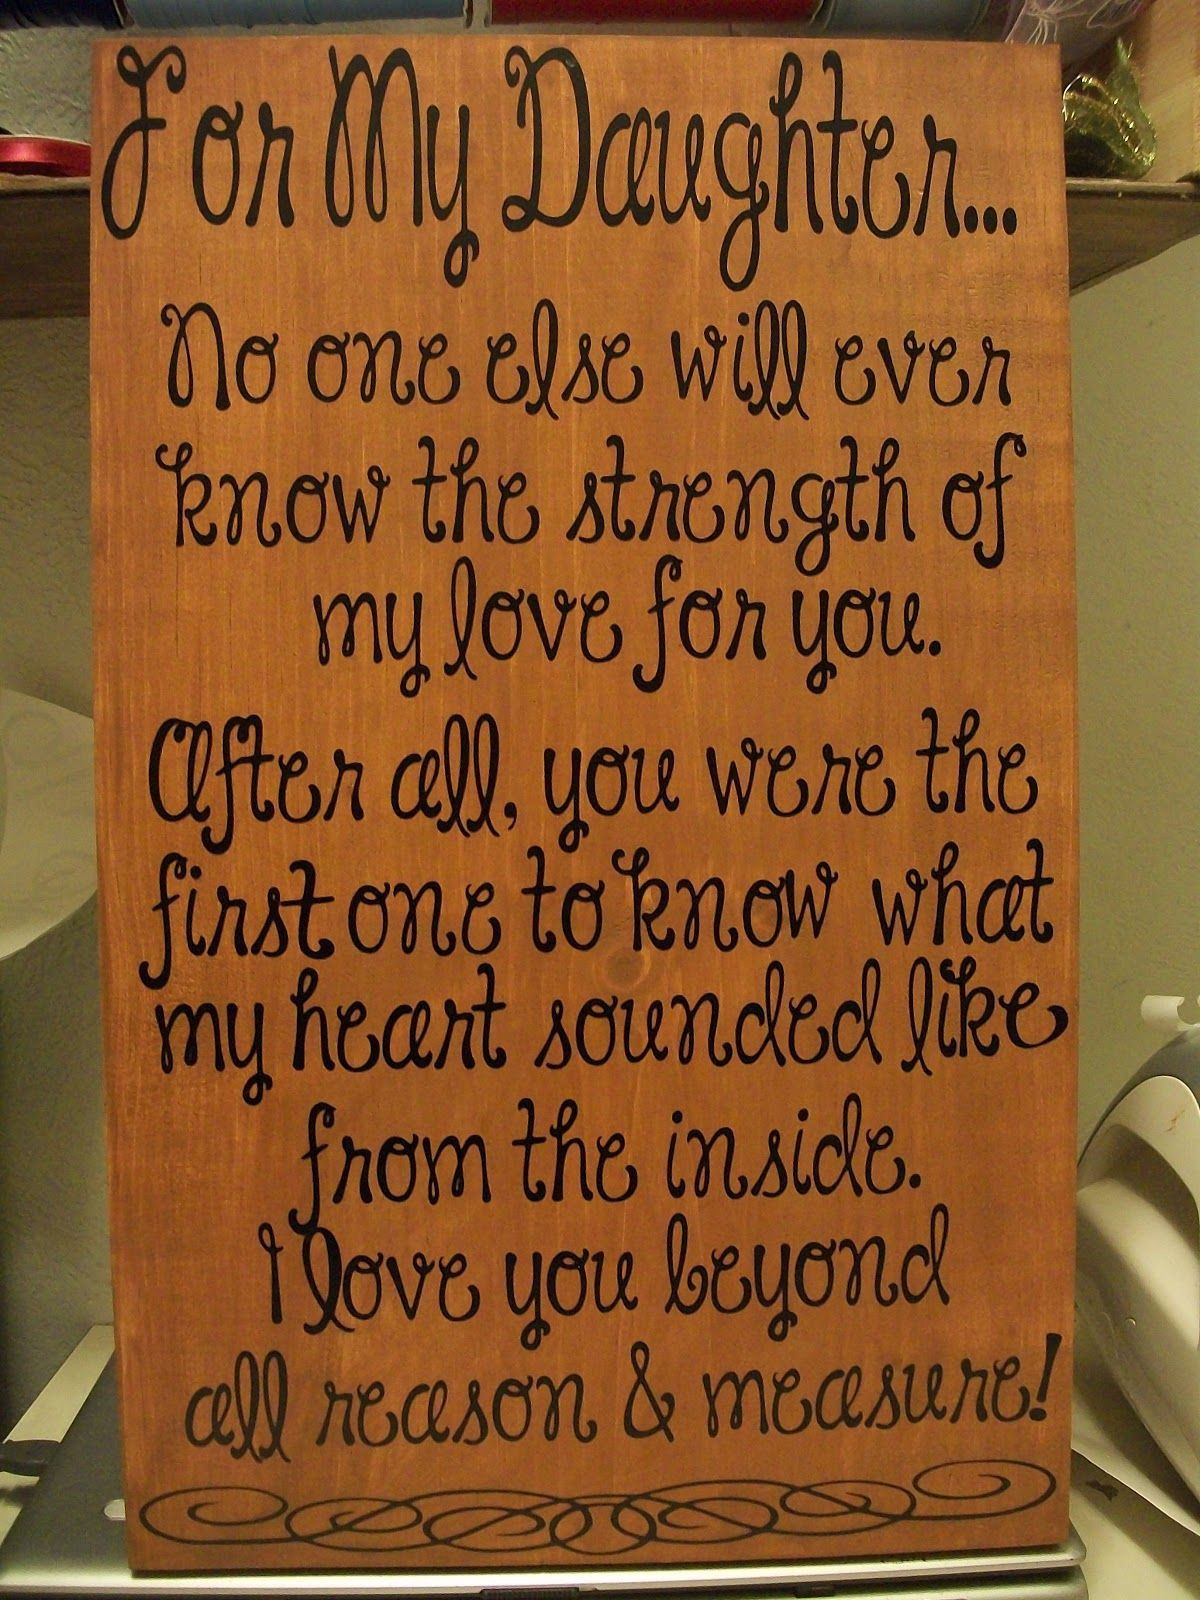 For My Daughter...
No one else will ever
know the strength of
my love for you.
After all, you were the
first one to know what
my heart sounded like
from the inside.
I love you beyond
all reason & measure!